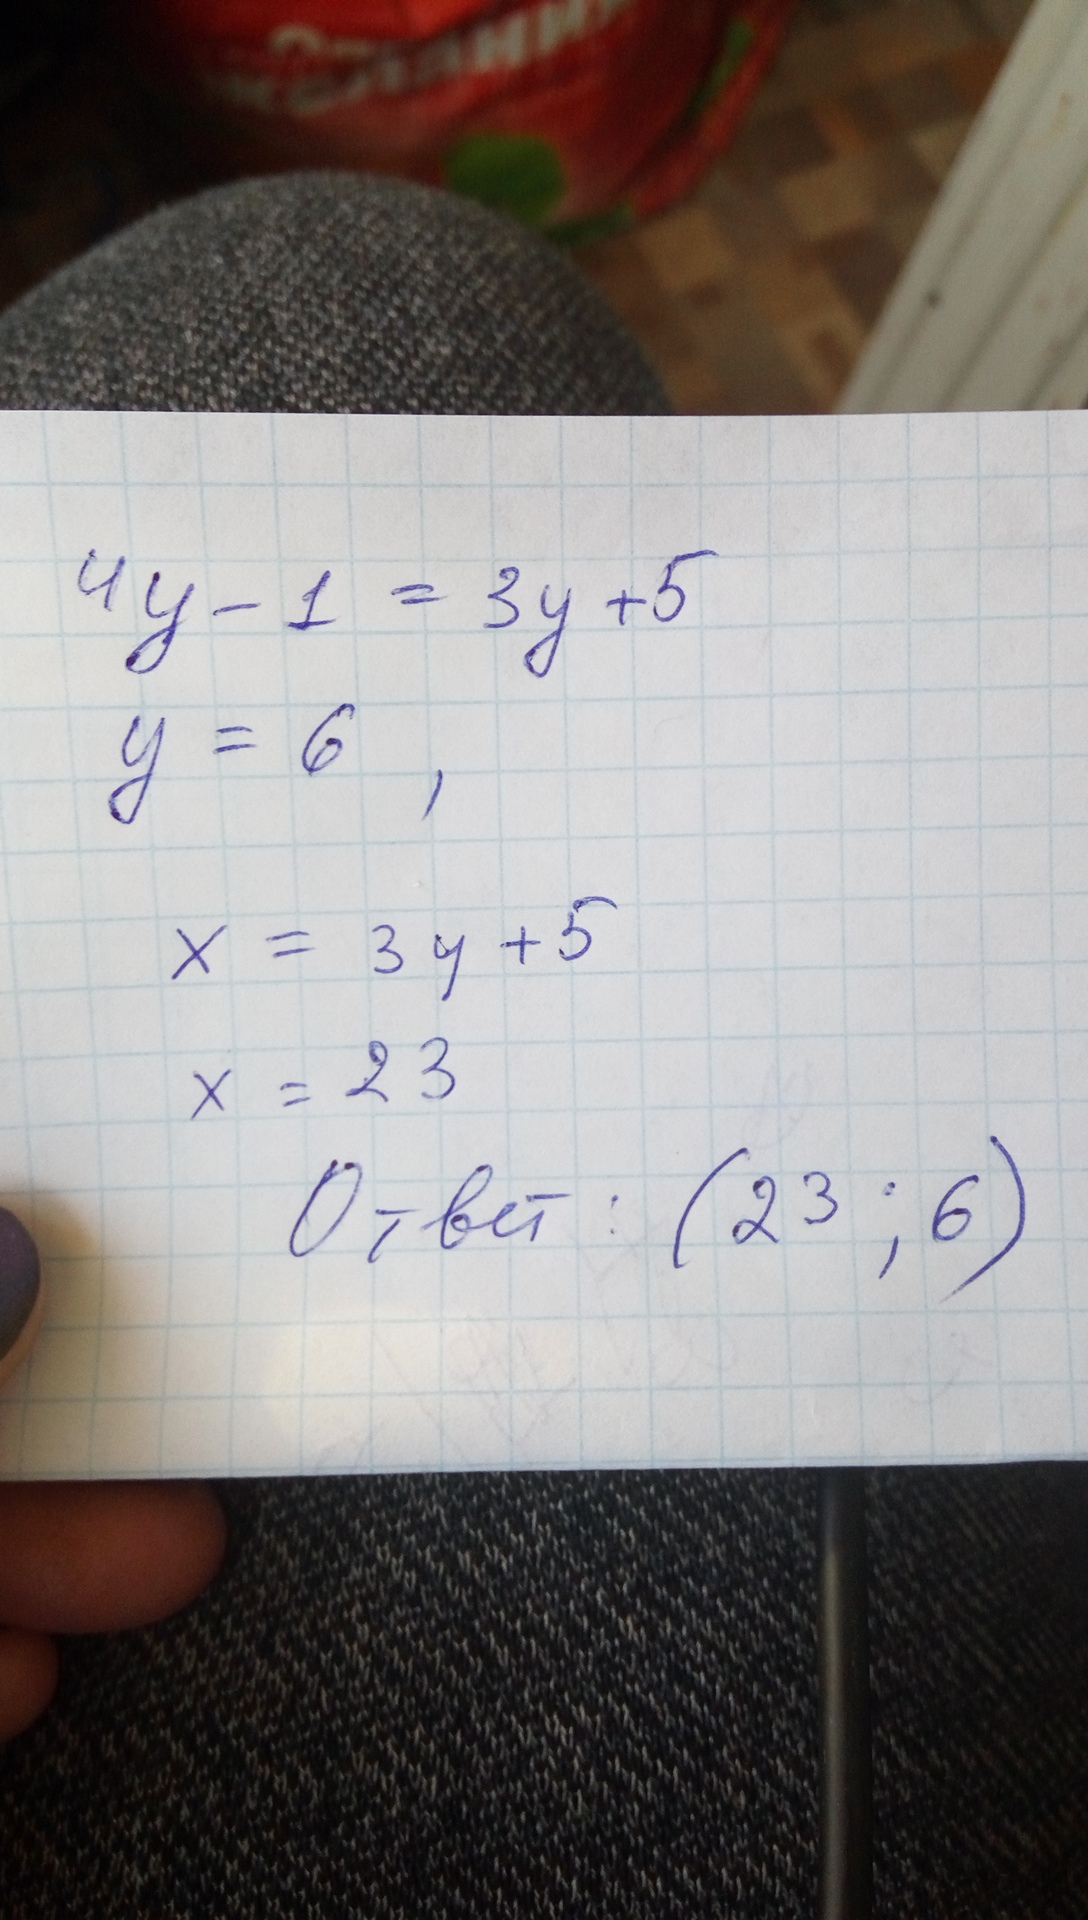 4y - 1 = 3y + 5
y = 6 ,
x = 3y + 5
x = 23
Ответ : (23 ; 6)